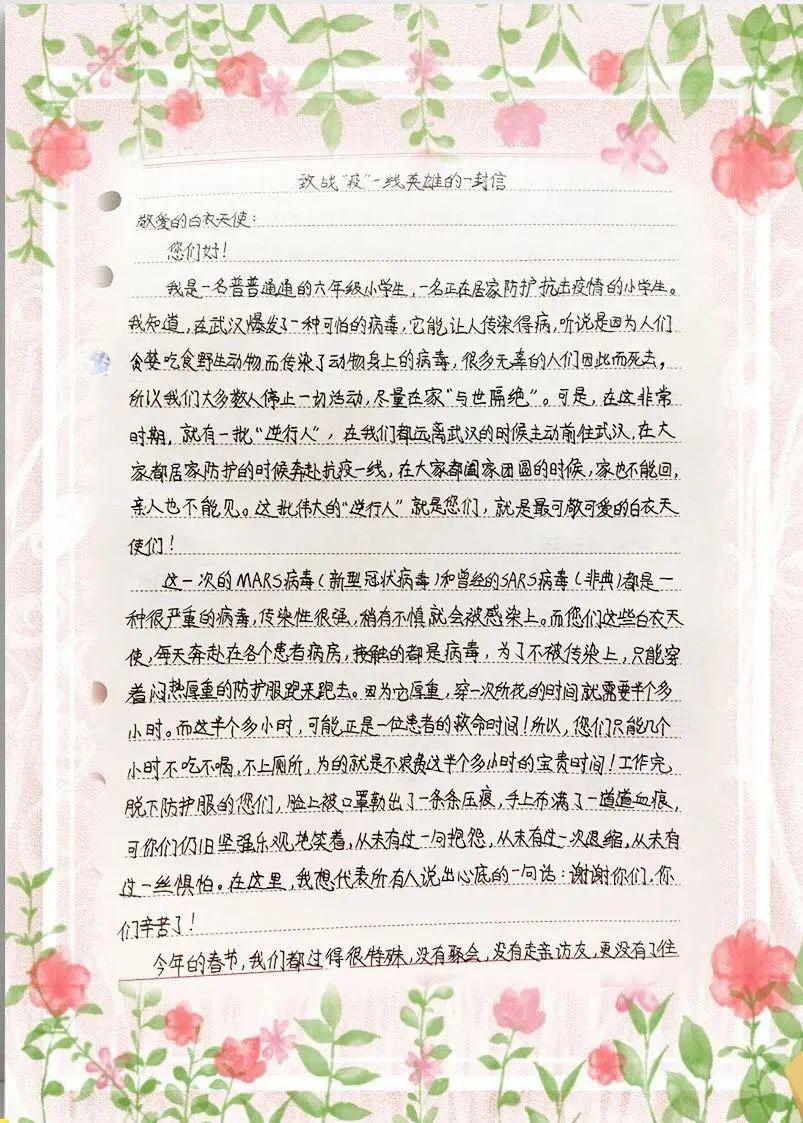 致战“疫”一线英雄的一封信
敬爱的白衣天使：
您们好！
我是一名普普通通的六年级小学生，一名正在居家防护抗击疫情的小学生。
我知道，在武汉爆发了一种可怕的病毒，它能让人传染得病，听说是因为人们
贪婪吃食野生动物而传染了动物身上的病毒，很多无辜的人们因此而死去，
所以我们大多数人停止一切活动，尽量在家“与世隔绝”。可是，在这非常
时期，就有一批“逆行人”，在我们都远离武汉的时候主动前往武汉，在大
家都居家防护的时候奔赴抗疫一线，在大家都阖家团圆的时候，家也不能回，
亲人也不能见。这批伟大的“逆行人”就是您们，就是最可敬可爱的白衣天
使们！
这一次的MARS病毒（新型冠状病毒）和曾经的SARS病毒（非典）都是一
种很严重的病毒，传染性很强，稍有不慎就会被感染上。而您们这些白衣天
使，每天奔赴在各个患者病房，接触的都是病毒，为了不被传染上，只能穿
着闷热厚重的防护服跑来跑去。因为它厚重，穿一次所花的时间就需要半个多
小时。而这半个多小时，可能正是一位患者的救命时间！所以，您们只能几个
小时不吃不喝，不上厕所，为的就是不浪费这半个多小时的宝贵时间！工作完，
脱下防护服的您们，脸上被口罩勒出了一条条压痕，手上布满了一道道血痕，
可你们仍旧坚强乐观地笑着，从未有过一句抱怨，从未有过一次退缩，从未有
过一丝惧怕。在这里，我想代表所有人说出心底的一句话：谢谢你们，你
们辛苦了！
今年的春节，我们都过得很特殊，没有聚会，没有走亲访友，更没有了往